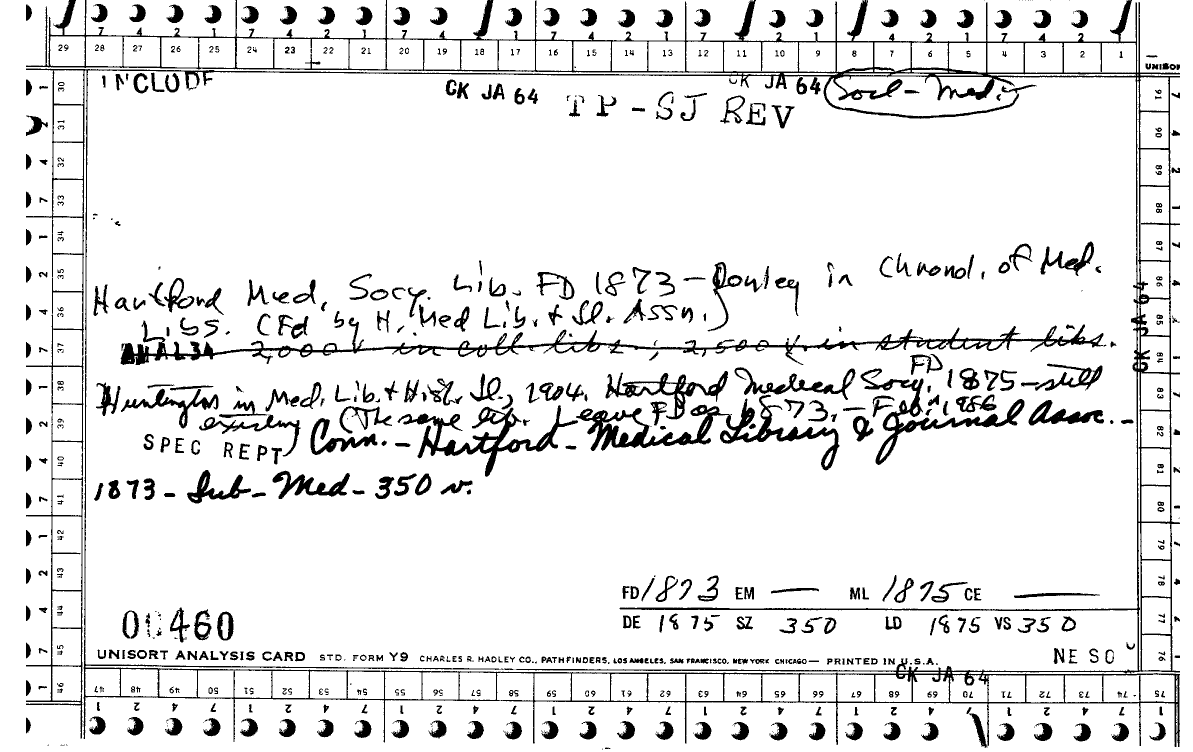 7 4 2 1 7 4 2 1 7 4 2 1 7 4 2 1 7 4 2 1
29 28 27 26 25 24 23 22 21 20 19 18 17 16 15 14 13 12 11 10 9 8 7 6 5 4 3 2 1
INCLUDE CK JA 64 CK JA 64 Socl-Med.
TP-SJ REV
Hartford Med. Socy. Lib. FD 1873 - Donley in Chronol. of Med.
Libs. (Fd by H. Med Lib. & Jl. Assn.)
2,000 V in coll. libs.; 2,500 V. in student libs.
Huntington in Med. Lib. & Hist. Jl., 1904. Hartford Medical Socy. FD 1875 - still
existing (The same lib. Leave FD as 1873.
SPEC REPT Conn. - Hartford - Medical Library & Journal Assoc. -
1873 - Sub - Med - 350 v.
FD 1873 EM — ML 1875 CE —
DE 1875 SZ 350 LD 1875 VS 350
00460
UNISORT ANALYSIS CARD STD. FORM Y9 CHARLES R. HADLEY CO., PATHFINDERS, LOS ANGELES, SAN FRANCISCO, NEW YORK CHICAGO — PRINTED IN U.S.A.
NE SO
CK JA 64
CK JA 64
47 48 49 50 51 52 53 54 55 56 57 58 59 60 61 62 63 64 65 66 67 68 69 70 71 72 73 74 75